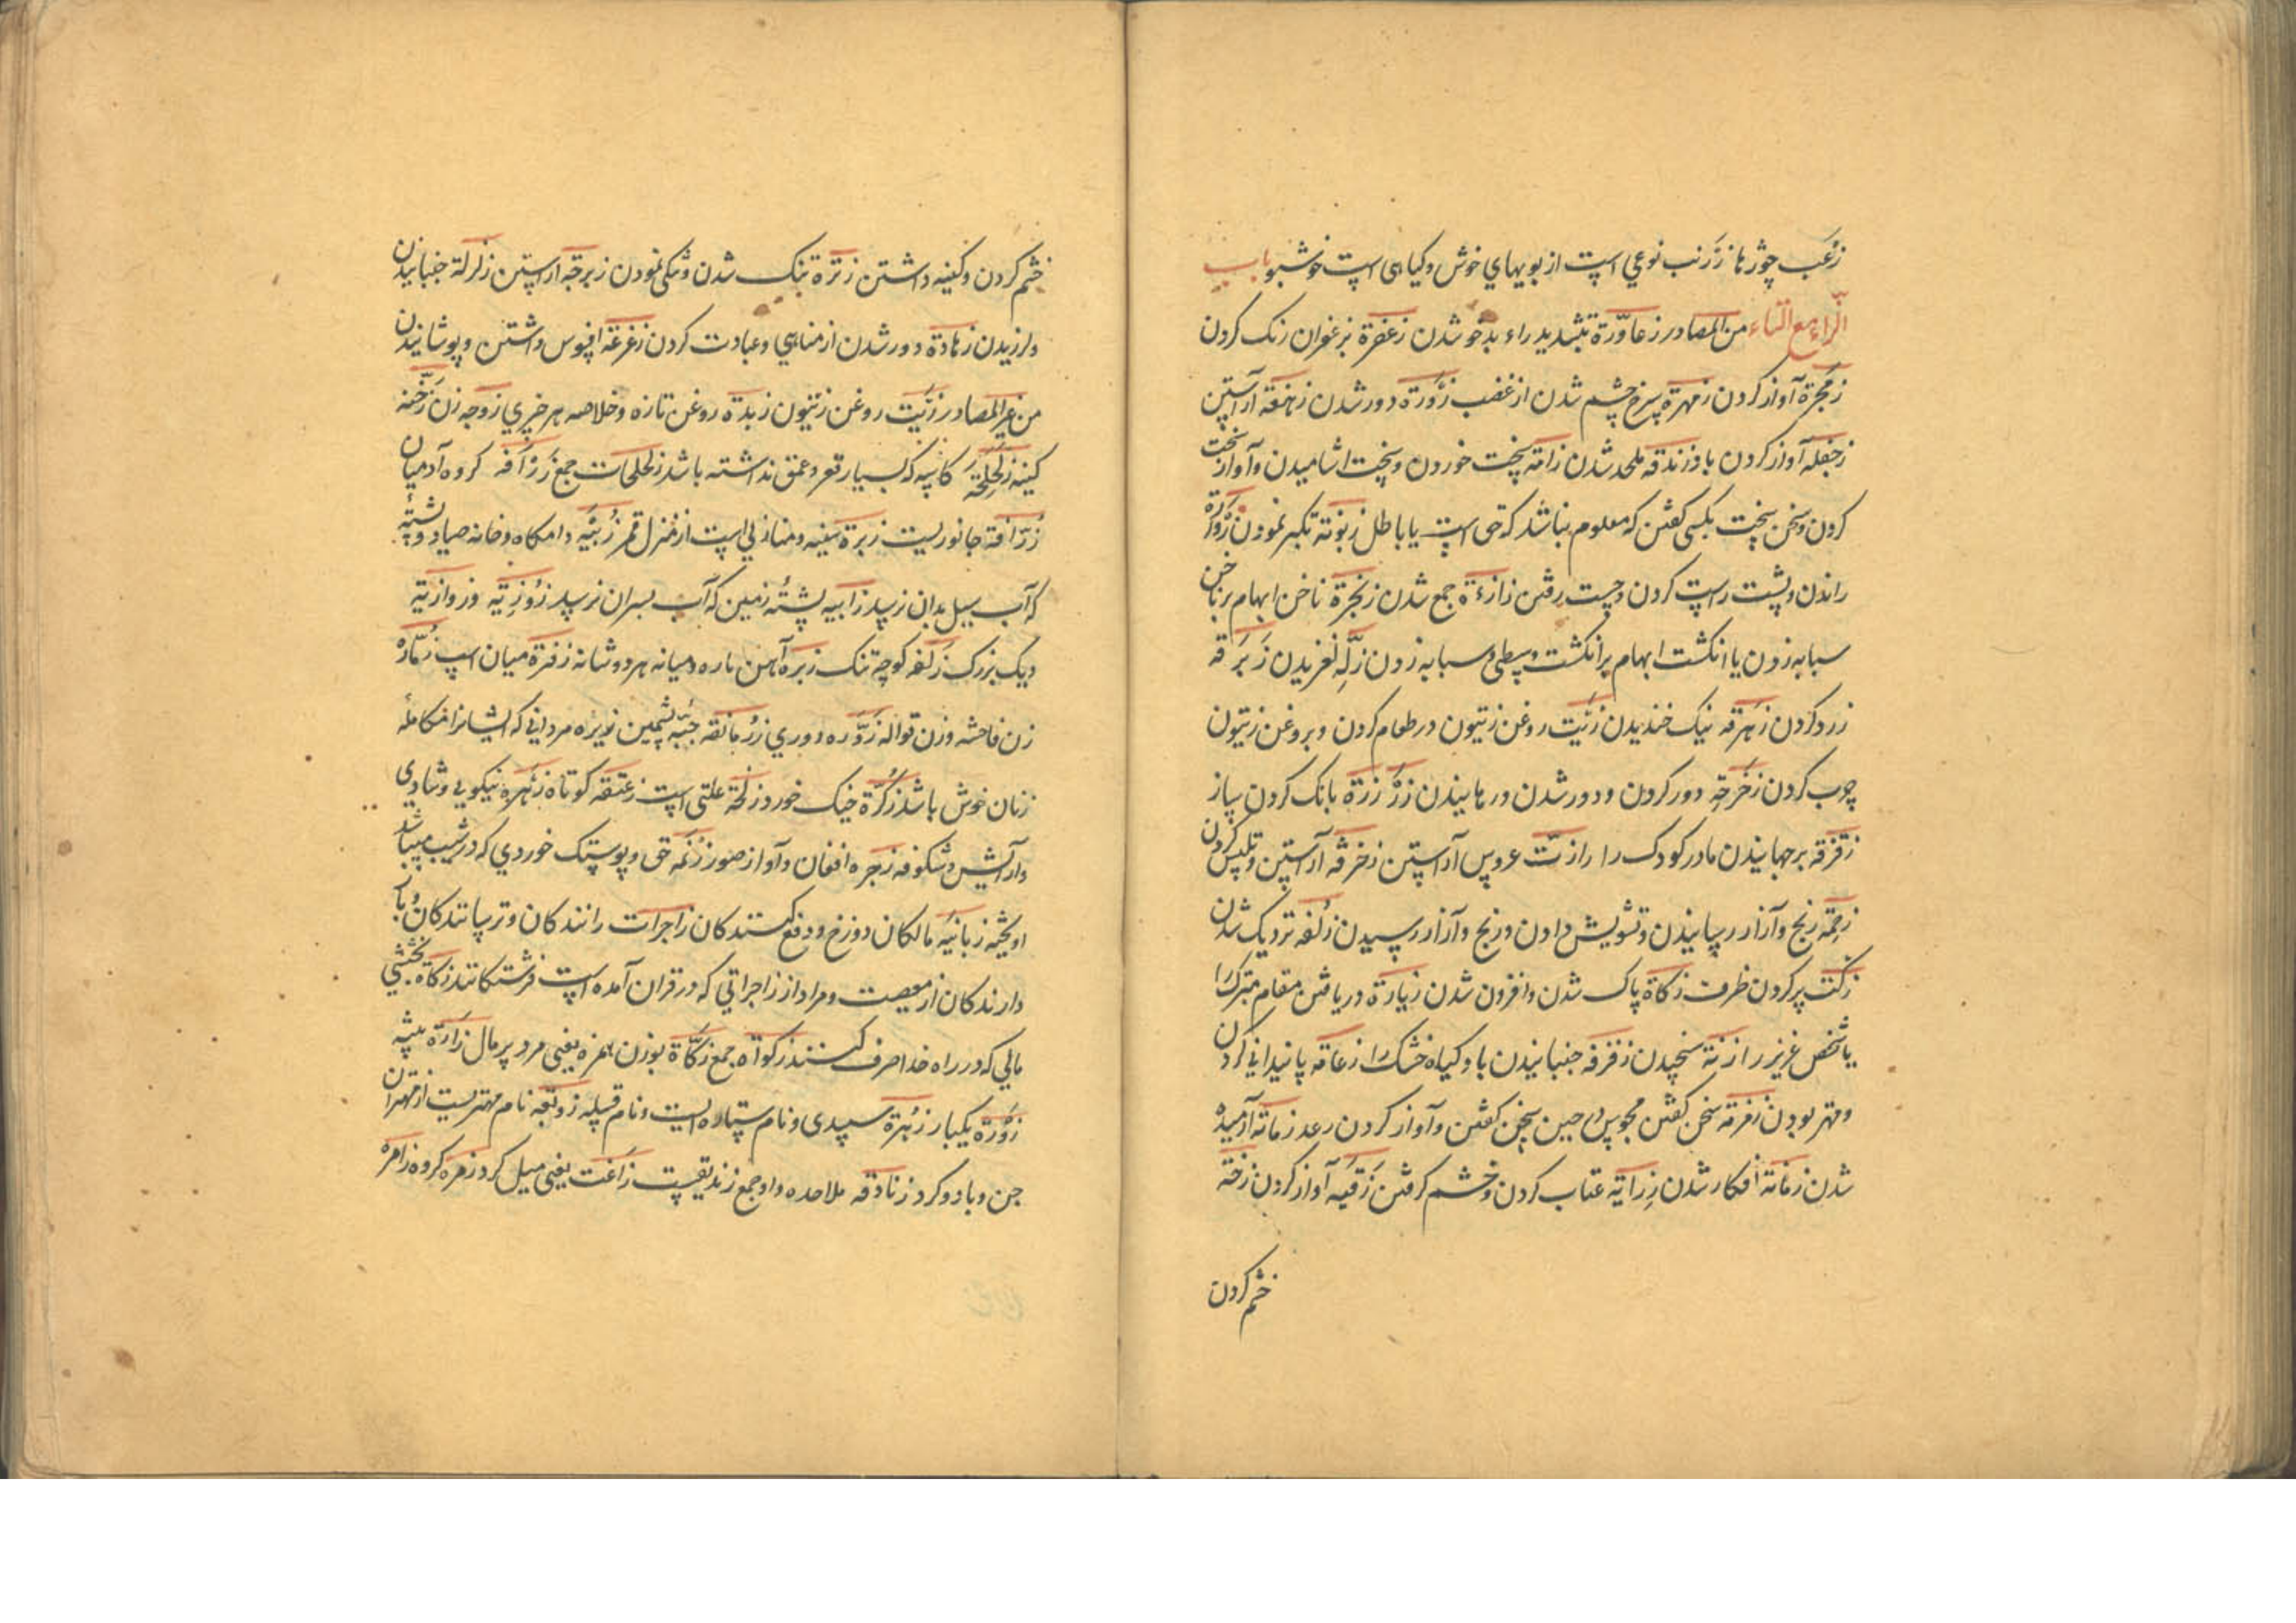 زغب چوزها زرنب نوعي است از بویهاي خوش و کیاهی است خوشبو باب
الزاء مع التاء من المصادر زعارّة بتشدید راء بدخو شدن زعفرة بزعفران رنک کردن
زمجرة آواز کردن زمهرة سرخ چشم شدن از غضب زورة دور شدن زهنعة آراستن
آواز کردن باد زندقه ملحد شدن زامة سخت خوردن و سخت اشامیدن و آواز سخت
کردن و سخن سخت بکسی کفتن که معلوم نباشد که حق است یا باطل زبونة تکبر نمودن زوزاة
راندن و پشت راست کردن و چست رفتن زازءة جمع شدن زنجرة ناخن ابهام بر ناخن
سبابه زدن یا انکشت ابهام بر انکشت وسطی و سبابه زدن زلّة لغزیدن زبرقه
زرد کردن زهرقه نیک خندیدن زیت روغن زیتون در طعام کردن و بروغن زیتون
چرب کردن زحزحة دور کردن و دور شدن و رهانیدن زرزرة بانک کردن سار
زقزقه برجهانیدن مادر کودک را زتّ عروس آراستن زخرفه آراستن و تلبیس کردن
زحمة رنج و آزار رسانیدن و تشویش دادن و رنج و آزار رسیدن زلفه نزدیک شدن
زکت پر کردن ظرف زکاة پاک شدن و افزون شدن زیارة دریافتن مقام متبرک را
یا شخص عزیز را زنة سنجیدن زفزفه جنبانیدن باد کیاه خشک را زعامة پایندانی کردن
و مهتر بودن زمزمة سخن کفتن مجوس در حین سخن کفتن و آواز کردن رعد زماتة آرمیده
شدن زمانة افکار شدن زرایة عتاب کردن و خشم کرفتن زقیه آواز کردن زخة
خشم کردن
خشم کردن و کینه داشتن زترة تنک شدن و تنکی نمودن زبرجة آراستن زلزلة جنبانیدن
و لرزیدن زهادة دور شدن از مناهي و عبادت کردن زغزغة افسوس داشتن و پوشانیدن
من غیر المصادر زیت روغن زیتون زبدة روغن تازه و خلاصه هر چیزي زوجه زن زخة
کینه زلحلحة کاسه که بسیار قعر و عمق نداشته باشد زلحلحات جمع زرافه کروه آدمیان
زرّافة جانوریست زبرة سینه و منازلي است از منزل قمر زبیه دامکاه و خانه صیاد و پشتهٔ
که آب سیل بدان نرسد زابیه پشتهٔ زمین که آب بسر آن نرسد زوزیة و زوازیة
دیک بزرک زلفه کوچه تنک زبرة آهن پاره و میانه هر دو شانه زفرة میان اسپ زمّاره
زن فاحشه و زن قواله زورة دوري زرمانقه جبّهٔ پشمین زیره مردانی که ایشانرا مکاملهٔ
زنان خوش باشد زکرة خیک خورد زلخة علتی است زعنقة کوتاه زهرة نیکویي و شادي
و آرایش و شکوفه زجره افغان و آواز صور زنمه حق و پوستک خوردي که در شیب میباشد
آویخته زبانیه مالکان دوزخ و دفع کنندکان زاجرات رانندکان و ترسانندکان و باز
دارندکان از معصیت و مراد از زاجراتي که در قران آمده است فرشتکانند زکاة بخششي
مالي که در راه خدا صرف کنند زکوآة جمع زکأة بوزن همزه یعنی مرد پر مال زارة بیشه
زورة یکبار زهرة سپیدی و نام ستاره ایست و نام قبیله زوبعه نام مهتریست از مهتران
جن و باد و کرد زنادقه ملاحده و او جمع زندیقست زاغت یعنی میل کرد زمرة کروه زامره